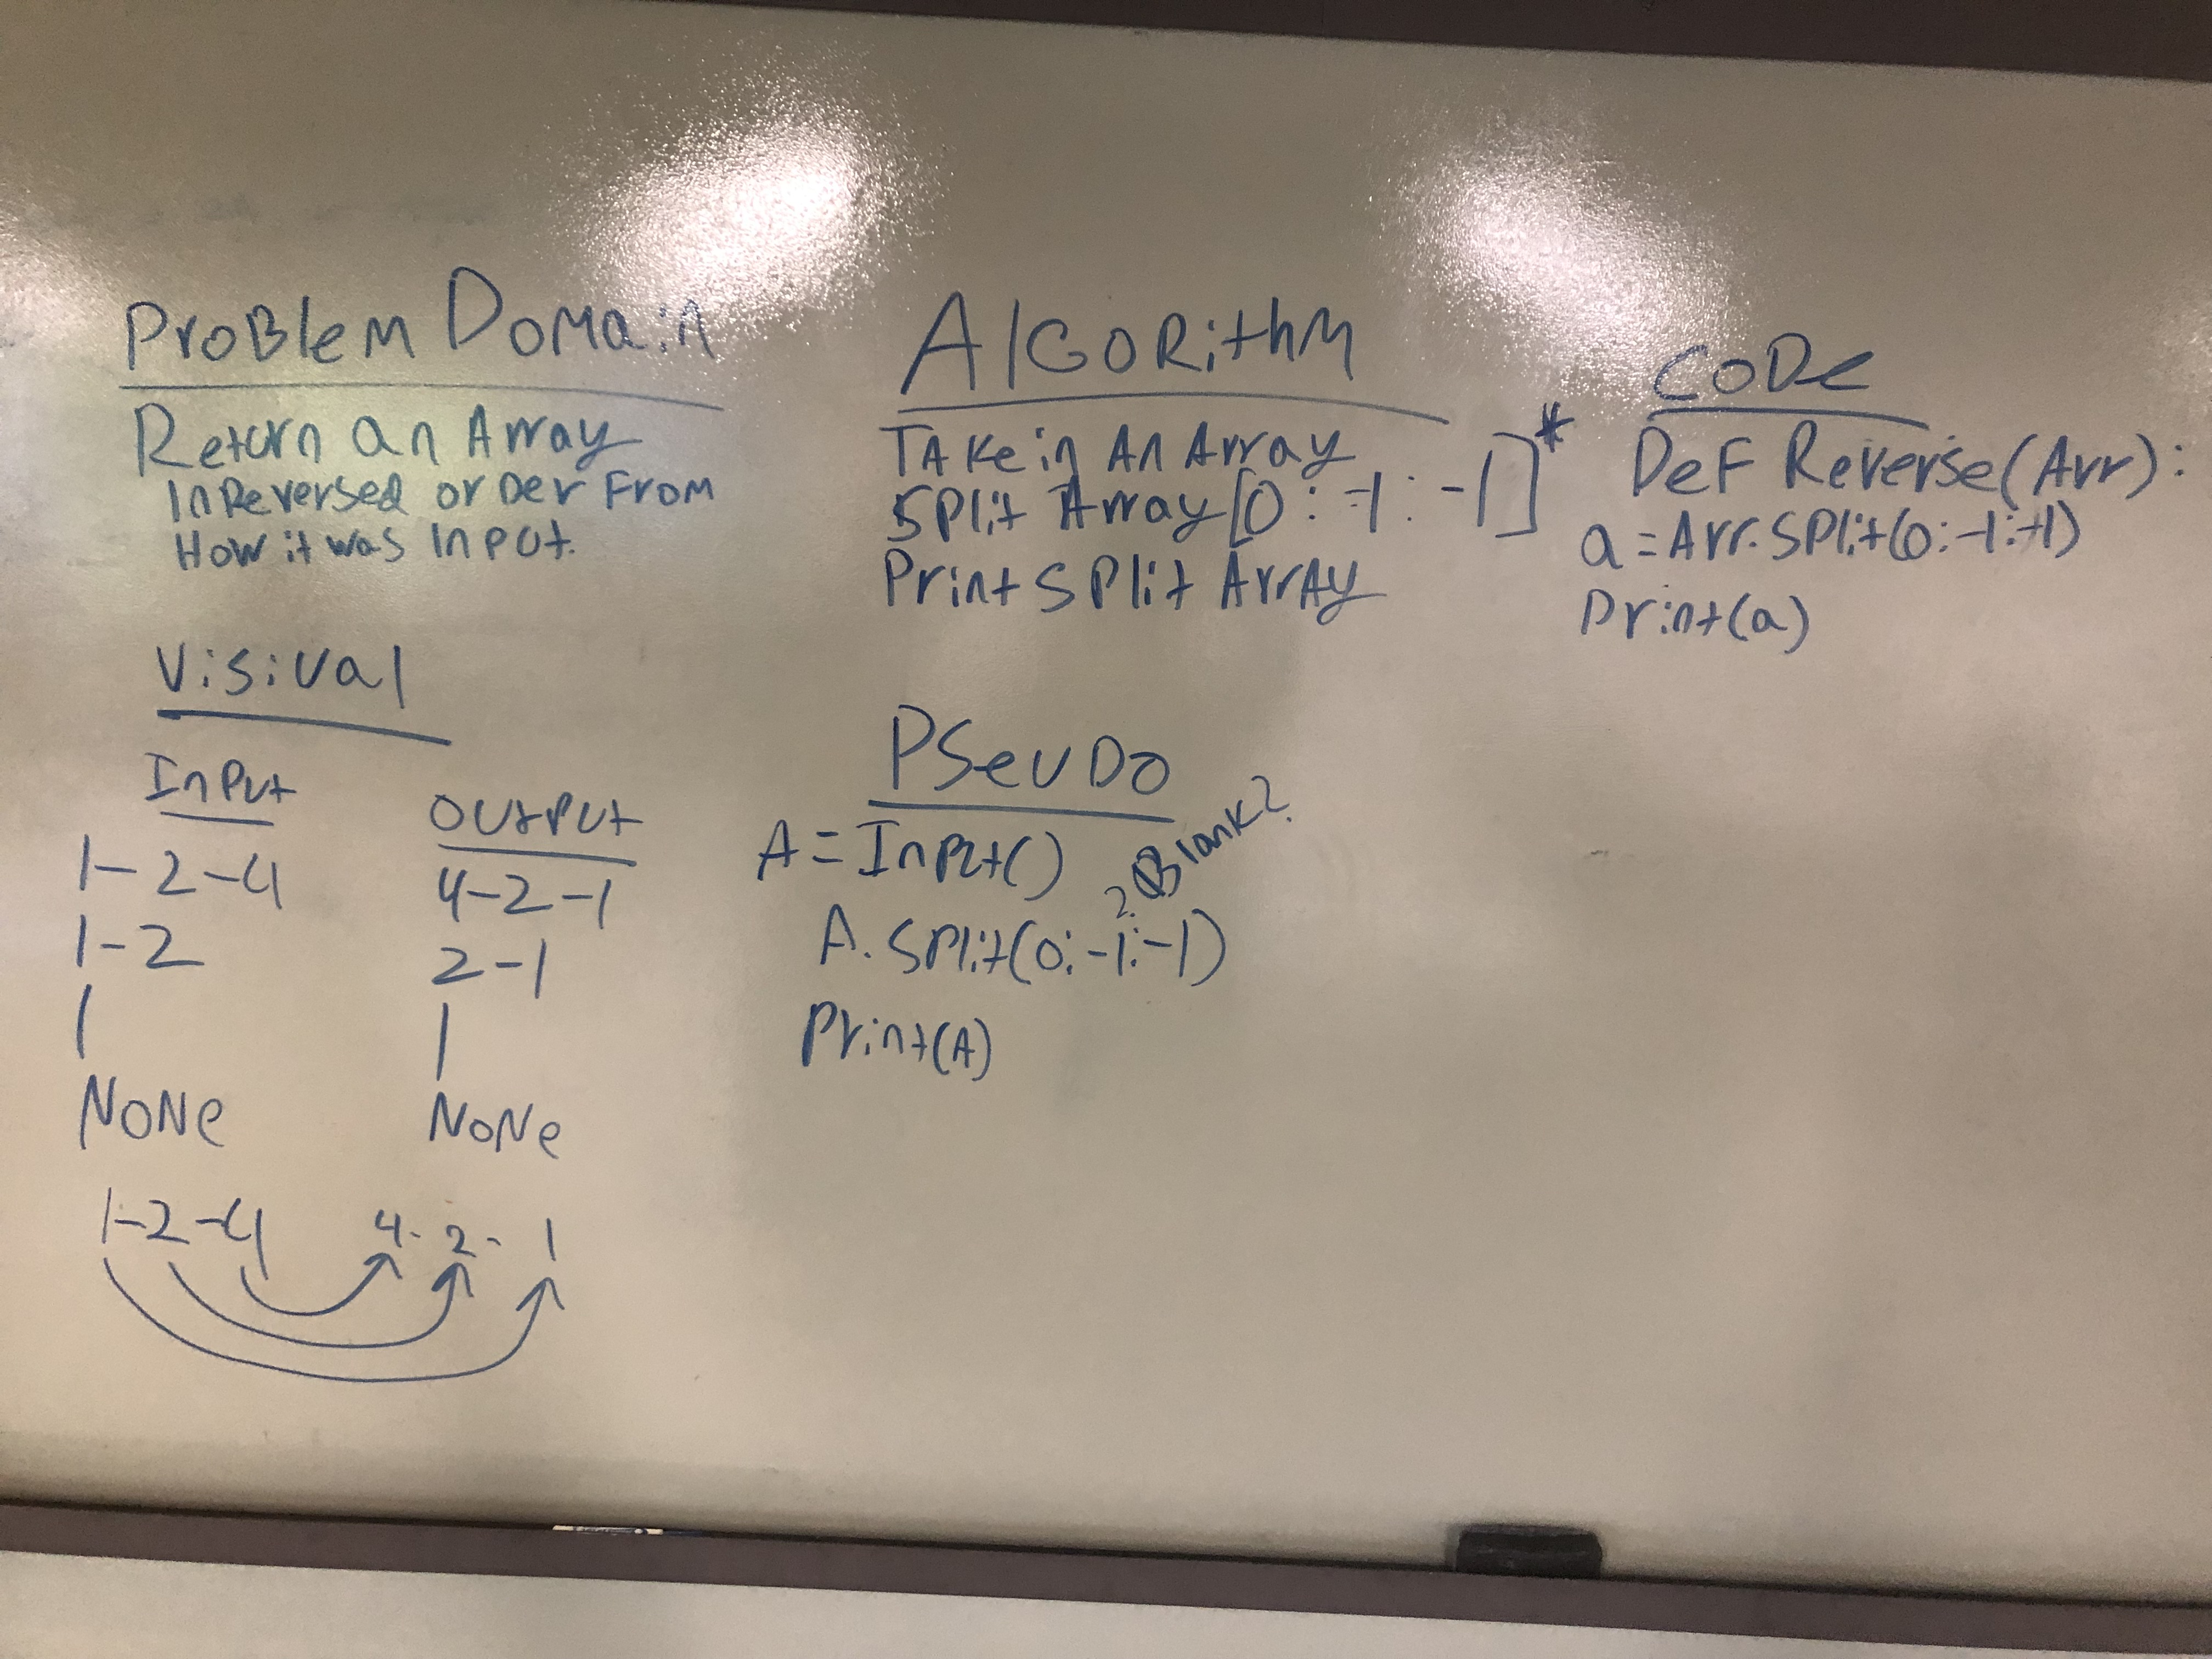 Problem Domain
Return an Array
In Reversed order From
How it was Input.
Visival
Input
Output
1-2-4
4-2-1
1-2
2-1
1
1
None
None
1-2-4
4-2-1
Algorithm
Take in An Array
Split Array [0:-1:-1]*
Print Split Array
Pseudo
A = Input()
?Blank?
A.Split(0:-1:-1)
Print(A)
Code
Def Reverse(Arr):
a = Arr.Split(0:-1:-1)
Print(a)